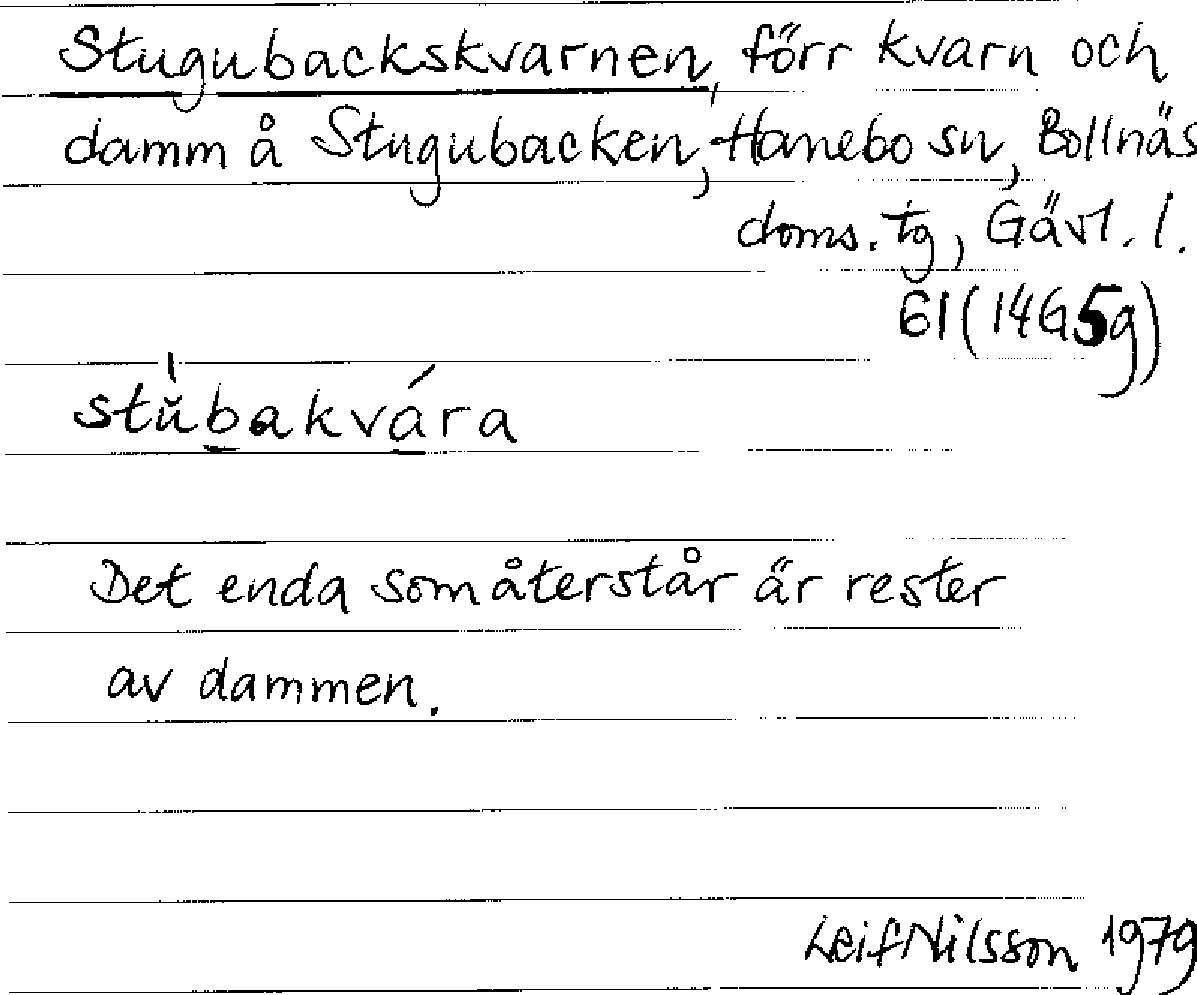 Stugubackskvarnen, förr kvarn och
damm å Stugubacken, Hanebo sn, Bollnäs
doms. tg, Gävl. l.
61 (14G5g)
stŭbakvára
Det enda som återstår är rester
av dammen.
Leif Nilsson 1979